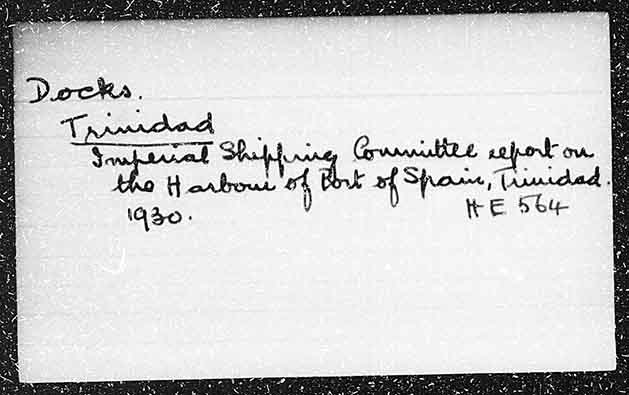 Docks.
Trinidad
Imperial Shipping Committee report on
the Harbour of Port of Spain, Trinidad.
1930.
HE 564